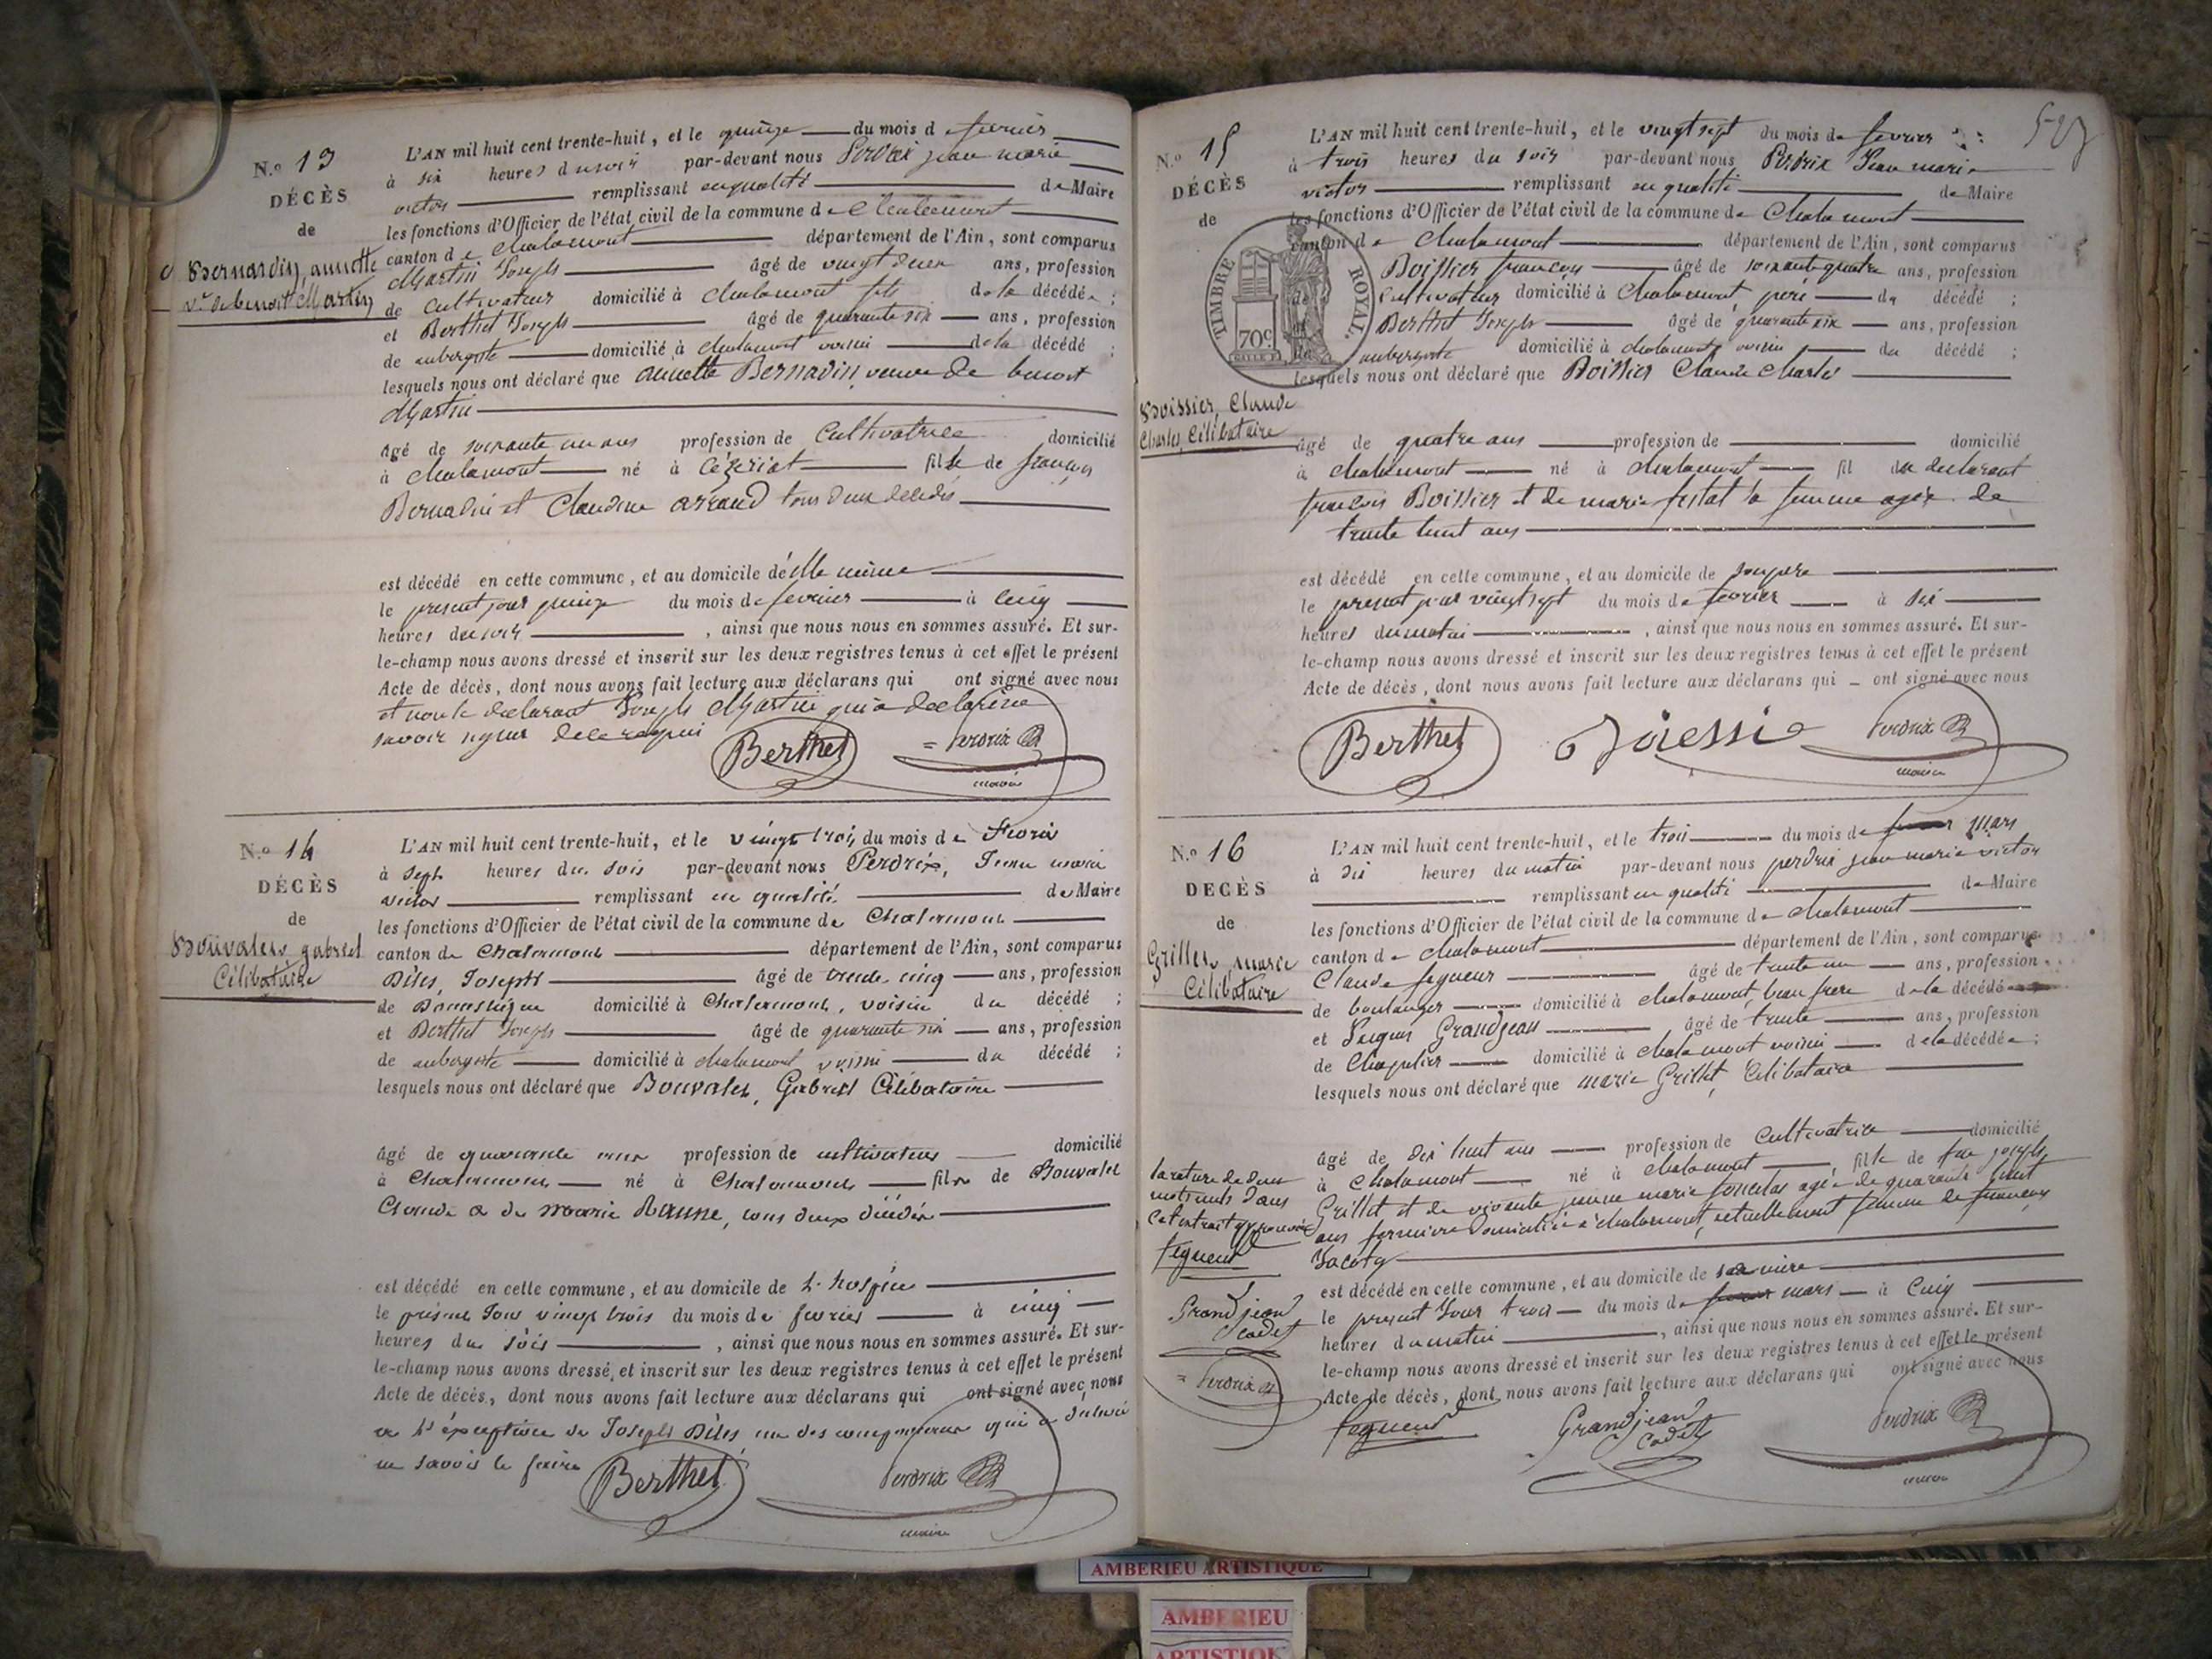 N.o 13
DÉCÈS
de
Bernardin, annette
Ve de benoit Martin
L'AN mil huit cent trente-huit, et le quinze du mois de fevrier
à six heures du soir par-devant nous Perdrix jean marie
victor remplissant en qualité de Maire
les fonctions d'Officier de l'état civil de la commune de Chalamont
canton de chalamont département de l'Ain, sont comparus
Martin Joseph âgé de vingt deux ans, profession
de cultivateur domicilié à chalamont fils de la décédée ;
et Berthet Joseph âgé de quarante six ans, profession
de aubergiste domicilié à chalamont voisin de la décédé ;
lesquels nous ont déclaré que annette Bernadin, veuve de benoit
Martin
âgé de soixante un ans profession de Cultivatrice domicilié
à chalamont né à Cézeriat fille de françois
Bernadin et Claudine arraud tous deux décédés
est décédé en cette commune, et au domicile de elle même
le present jour quinze du mois de fevrier à cinq
heures du soir , ainsi que nous nous en sommes assuré. Et sur-
le-champ nous avons dressé et inscrit sur les deux registres tenus à cet effet le présent
Acte de décès, dont nous avons fait lecture aux déclarans qui ont signé avec nous
et non le declarant Joseph Martin qui a declaré ne
savoir signer de ce requi
Berthet
Perdrix
maire
N.o 14
DÉCÈS
de
Bouvalet, gabriel
Célibataire
L'AN mil huit cent trente-huit, et le vingt trois du mois de Fevrier
à sept heures du soir par-devant nous Perdrix, Jean marie
victor remplissant en qualité de Maire
les fonctions d'Officier de l'état civil de la commune de Chalamont
canton de Chalamont département de l'Ain, sont comparus
Joseph âgé de trente cinq ans, profession
de Domestique domicilié à Chalamont, voisin du décédé ;
et Berthet Joseph âgé de quarante six ans, profession
de aubergiste domicilié à chalamont voisin du décédé ;
lesquels nous ont déclaré que Bouvalet, Gabriel Célibataire
âgé de quarante ans profession de cultivateur domicilié
à Chalamont né à Chalamont fils de Bouvalet
Claude & de marie tous deux décédés
est décédé en cette commune, et au domicile de L'hospice
le présent Jour vingt trois du mois de fevrier à cinq
heures du soir , ainsi que nous nous en sommes assuré. Et sur-
le-champ nous avons dressé et inscrit sur les deux registres tenus à cet effet le présent
Acte de décès, dont nous avons fait lecture aux déclarans qui ont signé avec nous
à l'exception de Joseph un des comparans qui a déclaré
ne savoir le faire
Berthet
Perdrix
maire
503
N.o 15
DÉCÈS
de
TIMBRE ROYAL
70c
Boissier, Claude
Charles, Célibataire
L'AN mil huit cent trente-huit, et le vingt sept du mois de fevrier
à trois heures du soir par-devant nous Perdrix Jean marie
victor remplissant en qualité de Maire
les fonctions d'Officier de l'état civil de la commune de Chalamont
canton de Chalamont département de l'Ain, sont comparus
Boissier françois âgé de soixante quatre ans, profession
de Cultivateur domicilié à Chalamont, père du décédé ;
et Berthet Joseph âgé de quarante six ans, profession
de aubergiste domicilié à chalamont voisin du décédé ;
lesquels nous ont déclaré que Boissier Claude Charles
âgé de quatre ans profession de domicilié
à chalamont né à chalamont fil du declarant
françois Boissier et de marie festat sa femme agée de
trente huit ans
est décédé en cette commune, et au domicile de son pere
le present jour vingt sept du mois de fevrier à six
heures du matin , ainsi que nous nous en sommes assuré. Et sur-
le-champ nous avons dressé et inscrit sur les deux registres tenus à cet effet le présent
Acte de décès, dont nous avons fait lecture aux déclarans qui ont signé avec nous
Berthet
Perdrix
maire
N.o 16
DÉCÈS
de
Grillet, marie
Célibataire
L'AN mil huit cent trente-huit, et le trois du mois de mars
à dix heures du matin par-devant nous perdrix jean marie victor
remplissant en qualité de Maire
les fonctions d'Officier de l'état civil de la commune de chalamont
canton de chalamont département de l'Ain, sont comparus
Claude fequeur âgé de trente un ans, profession
de boulanger domicilié à chalamont, beau frere de la décédé
et Grandjean âgé de trente ans, profession
de Chapelier domicilié à chalamont voisin de la décédée ;
lesquels nous ont déclaré que marie Grillet, Celibataire
âgé de dix huit ans profession de Cultivatrice domicilié
à Chalamont né à chalamont, fille de feu joseph
Grillet et de vivante jeanne marie agée de quarante huit
ans fermiere domiciliée à chalamont, actuellement femme de françois
Jacoty
est décédé en cette commune, et au domicile de sa mère
le present Jour trois du mois de mars à Cinq
heures du matin , ainsi que nous nous en sommes assuré. Et sur-
le-champ nous avons dressé et inscrit sur les deux registres tenus à cet effet le présent
Acte de décès, dont nous avons fait lecture aux déclarans qui ont signé avec nous
la rature de deux
mots nuls dans
l'extrait approuvée
fequeur
Grandjean
Cadet
Perdrix
fequeur
Grandjean
Cadet
Perdrix
maire
AMBERIEU ARTISTIQUE
AMBERIEU
ARTISTIQUE